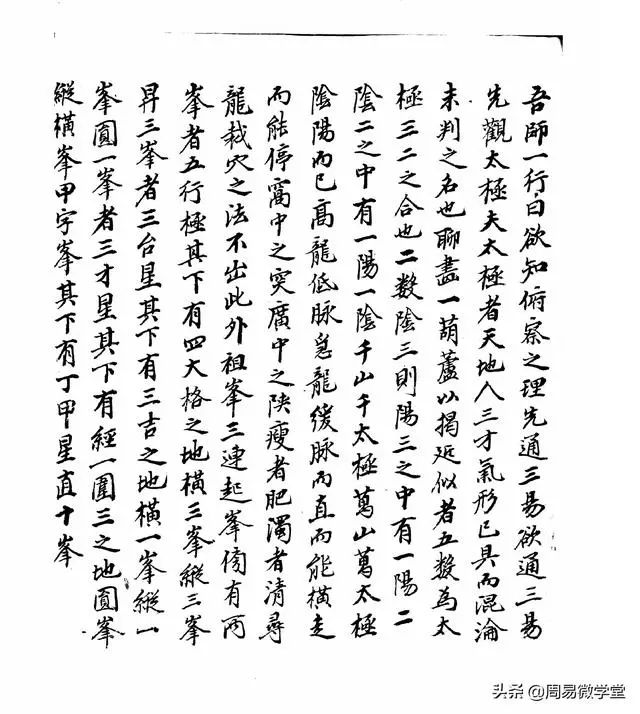 吾師一行曰欲知俯察之理先通三易欲通三易
先觀太極夫太極者天地人三才氣形已具而混淪
未判之名也聊畫一葫蘆以揭延似者五數為太
極三二之合也二數陰三則陽三之中有一陽二
陰二之中有一陽一陰千山千太極萬山萬太極
陰陽而已高龍低脉急龍緩脉而直而能橫走
而能停窩中之突廣中之陜瘦者肥濁者清尋
龍栽穴之法不出此外祖峯三連起峯傍有兩
峯者五行極其下有四大格之地橫三峯縱三峯
昇三峯者三台星其下有三吉之地橫一峯縱一
峯圓一峯者三才星其下有經一圍三之地圓峯
縱橫峯甲字峯其下有丁甲星直十峯
头条@周易微学堂